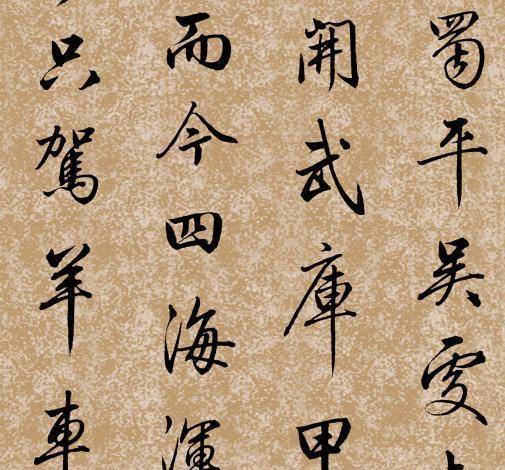 蜀平吳
開武庫甲
而今四海渾
只駕羊車